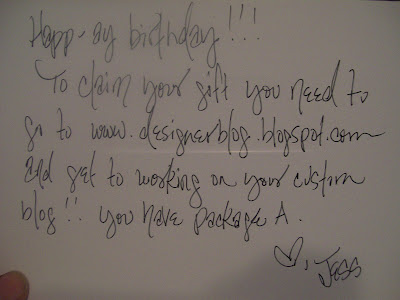 Happ-ay birthday!!!
To claim your gift you need to
go to www.designerblog.blogspot.com
and get to working on your custom
blog!! you have package A.
♡, Jess